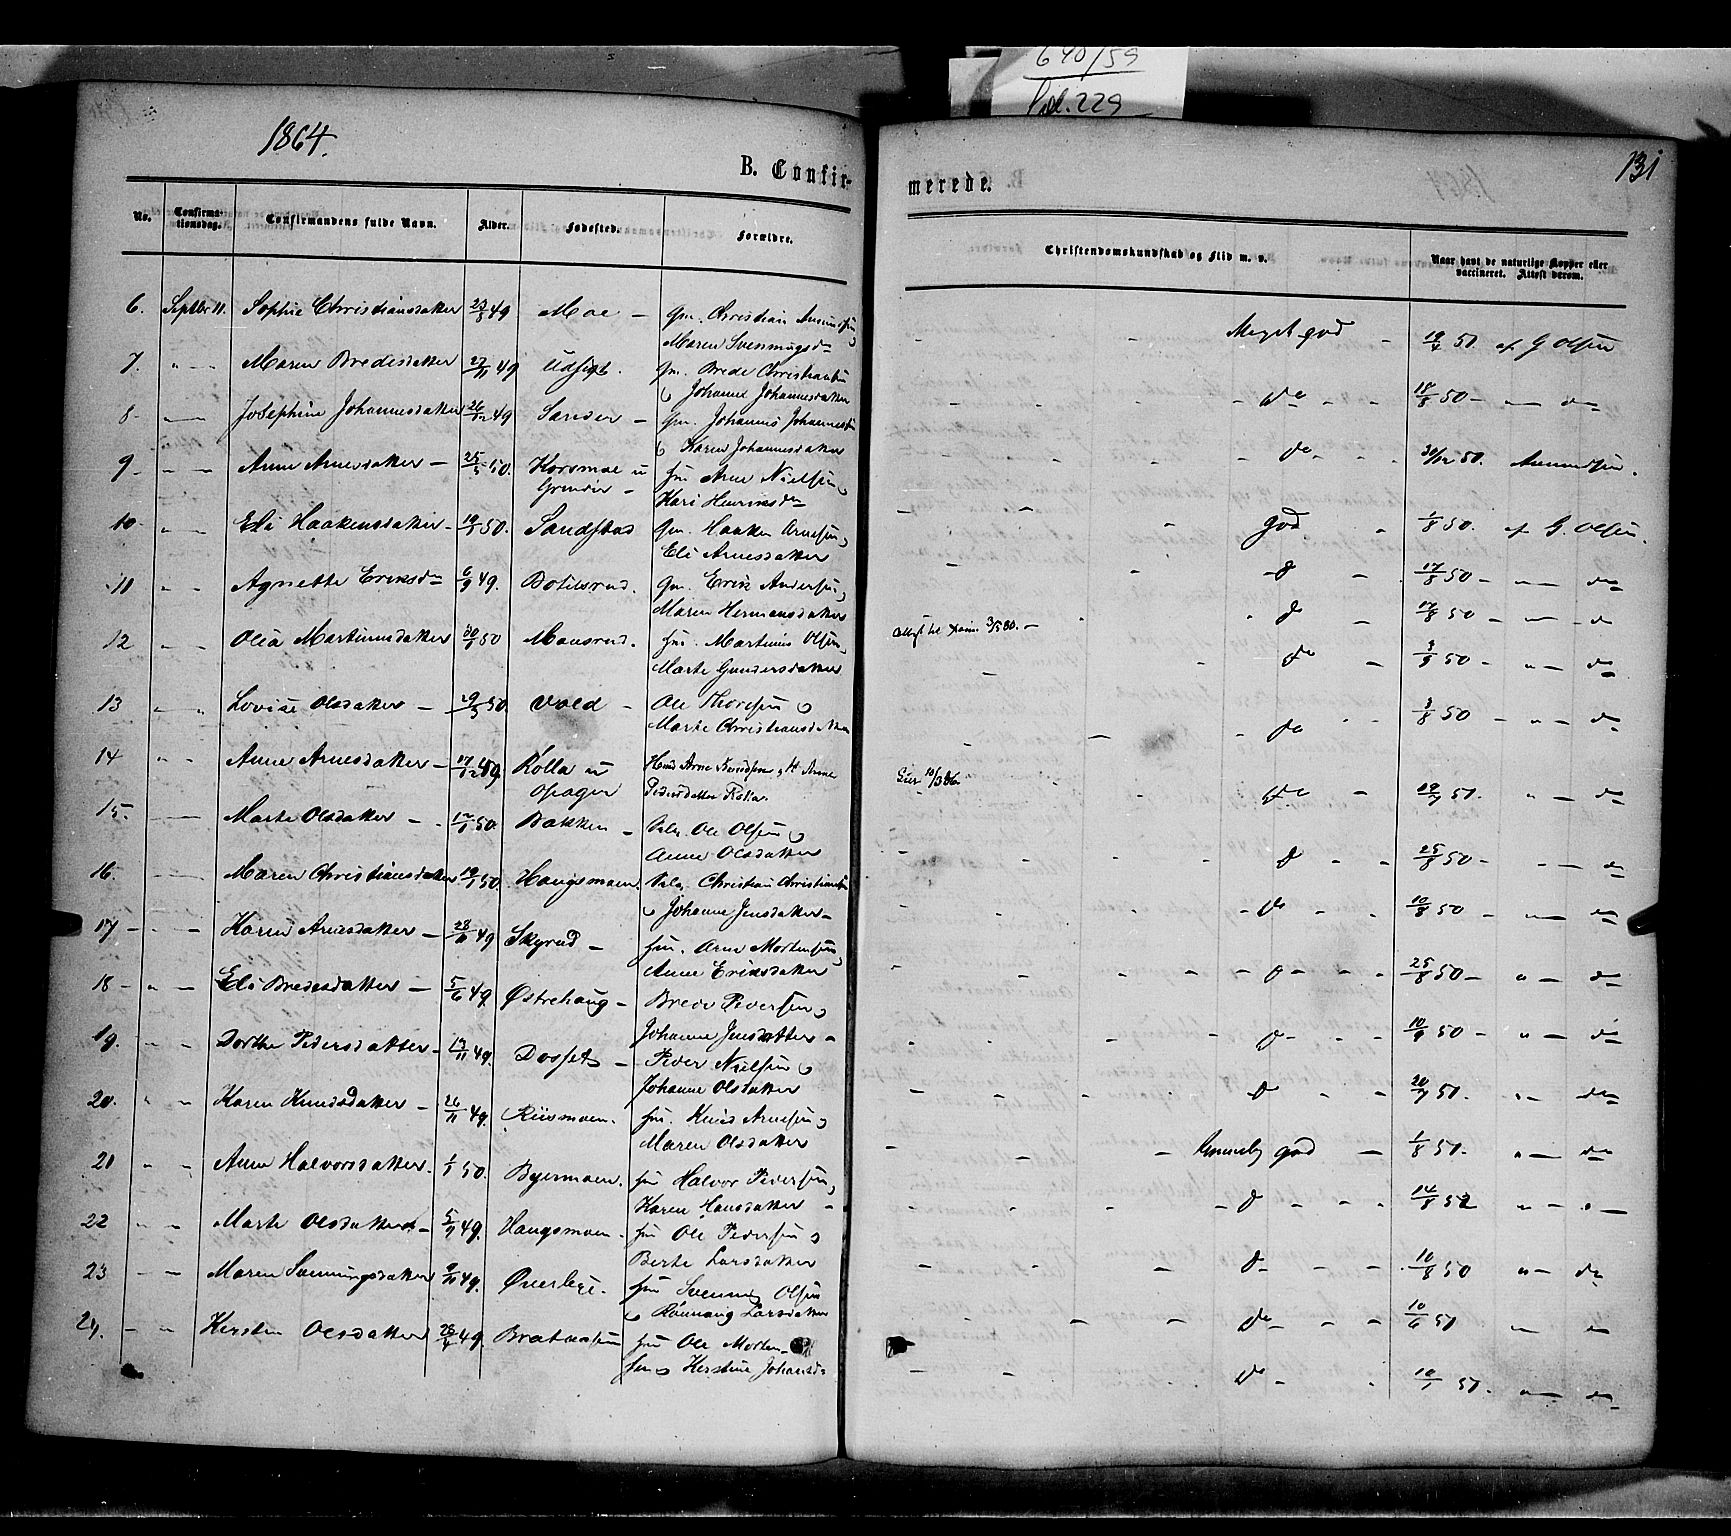 640/59
Pd. 229
1864.
131
B. Confir-
merede.
No.
Confirma-
tionsdag.
Confirmandens fulde Navn.
Alder.
Fødested.
Forældre.
Christendomskundskab og Flid m. v.
Naar havt de naturlige Kopper eller
vaccineret. Attest derom.
6. Septbr 11. Sophie Christiansdatter 23/8 49 Moe - Gm. Christian
Maren Svenningsd
Meget god - 19/4 51. af G Olsen
7. " - " Maren Bredesdatter 27/11 49 Udsigt. Gm. Brede Christiansen
Johanne Johannesdatter
do 18/8 50 - " - do
8 Josephine Johannesdatter 26/12 49 Sander - Gm. Johannes Johannesen
Karen Johannesdatter
do 30/12 50. Amundsen.
9 - - Anne Arnesdatter - 25/5 50. Korsmoe u
Grinder - Hm Arne Nielsen
Kari Henriksd
10 - " - Eli Haakensdatter - 19/1 50. Sandstad Gm. Haaken Arnesen
Eli Arnesdatter
god - 1/8 50. af G. Olsen.
11 " - Agnethe Eriksd 6/9 49. Botilsrud. Gm. Erik Andersen
Maren Hermansdatter
d - 17/8 50 - " - do
12 " - Olea Martinusdatter 30/1 50 Monsrud. Hm. Martinus Olsen
Marte Gundersdatter
3/5 80. - do 17/8 50 - " - do
13 " " Lovise Olsdatter - 29/3 50 Vold - Ole Thoresen
Marte Christiansdatter
do - 3/9 50 - " - do
14 " - Anne Arnesdatter - 17/12 49 Kolla u
Opager
Pedersdatter
do 3/8 50 - " - do
10/3 86.
15. Marte Olsdatter - 17/1 50. Bakken - Selv. Ole Olsen
Anne Olsdatter
do 19/7 51. " - do
16. Maren Christiansdatter 19/1 50. Haugsmoen. Selv. Christian Christiansen
Johanne Jensdatter -
d - 25/8 50 - - do
17 - - - Karen Arnesdatter - 28/11 49 Skyrud - Hm. Arne Mortensen
Anne Eriksdatter
do - - 10/8 50 - " - do
18 - " - Eli Bredesdatter - 5/6 49. Østrehaug - Brede Pedersen
Johanne Jensdatter -
d - - 25/8 50 - " - do
19. " - Dorthe Pedersdatter - 17/11 49. Dosset - Peder Nielsen
Johanne Olsdatter
d - - 10/9 50 - " - do
20. " - Karen Knudsdatter - 26/11 49. Riismoen. Hm. Knud Arnesen
Maren Olsdatter
d 20/7 51. " - do
21 " " Anne Halvorsdatter. 1/1 50. Byermoen. Hm Halvor Pedersen
Karen Hansdatter -
god - 1/8 51. " - do
22 " - Marte Olsdatter - 5/9 49. Haugsmoen. Hm Ole Pedersen
Berte Larsdatter
d - - 14/8 52 " - " -
23 - - Maren Svenningsdatter 9/11 49. Øverbye. Hm Svenning Olsen
Rønnaug Larsdatter
d - - 10/8 50 " - do
24. - " Kersten Olsdatter 28/4 49. Hm Ole Morten-
sen Kerstine Johansd -
do - - 10/6 51 " - do
do - 10/1 51. " - do